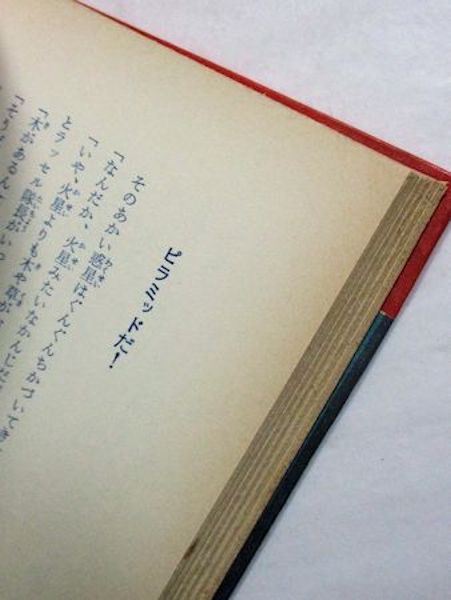 ピラミッドだ!
そのあかい惑星はぐんぐんちかづいてき
「なんだか、火星みたいなかんじだ
「いや、火星よりも木や草が
とラッセル隊長がいっ
「木があるん
「そうい